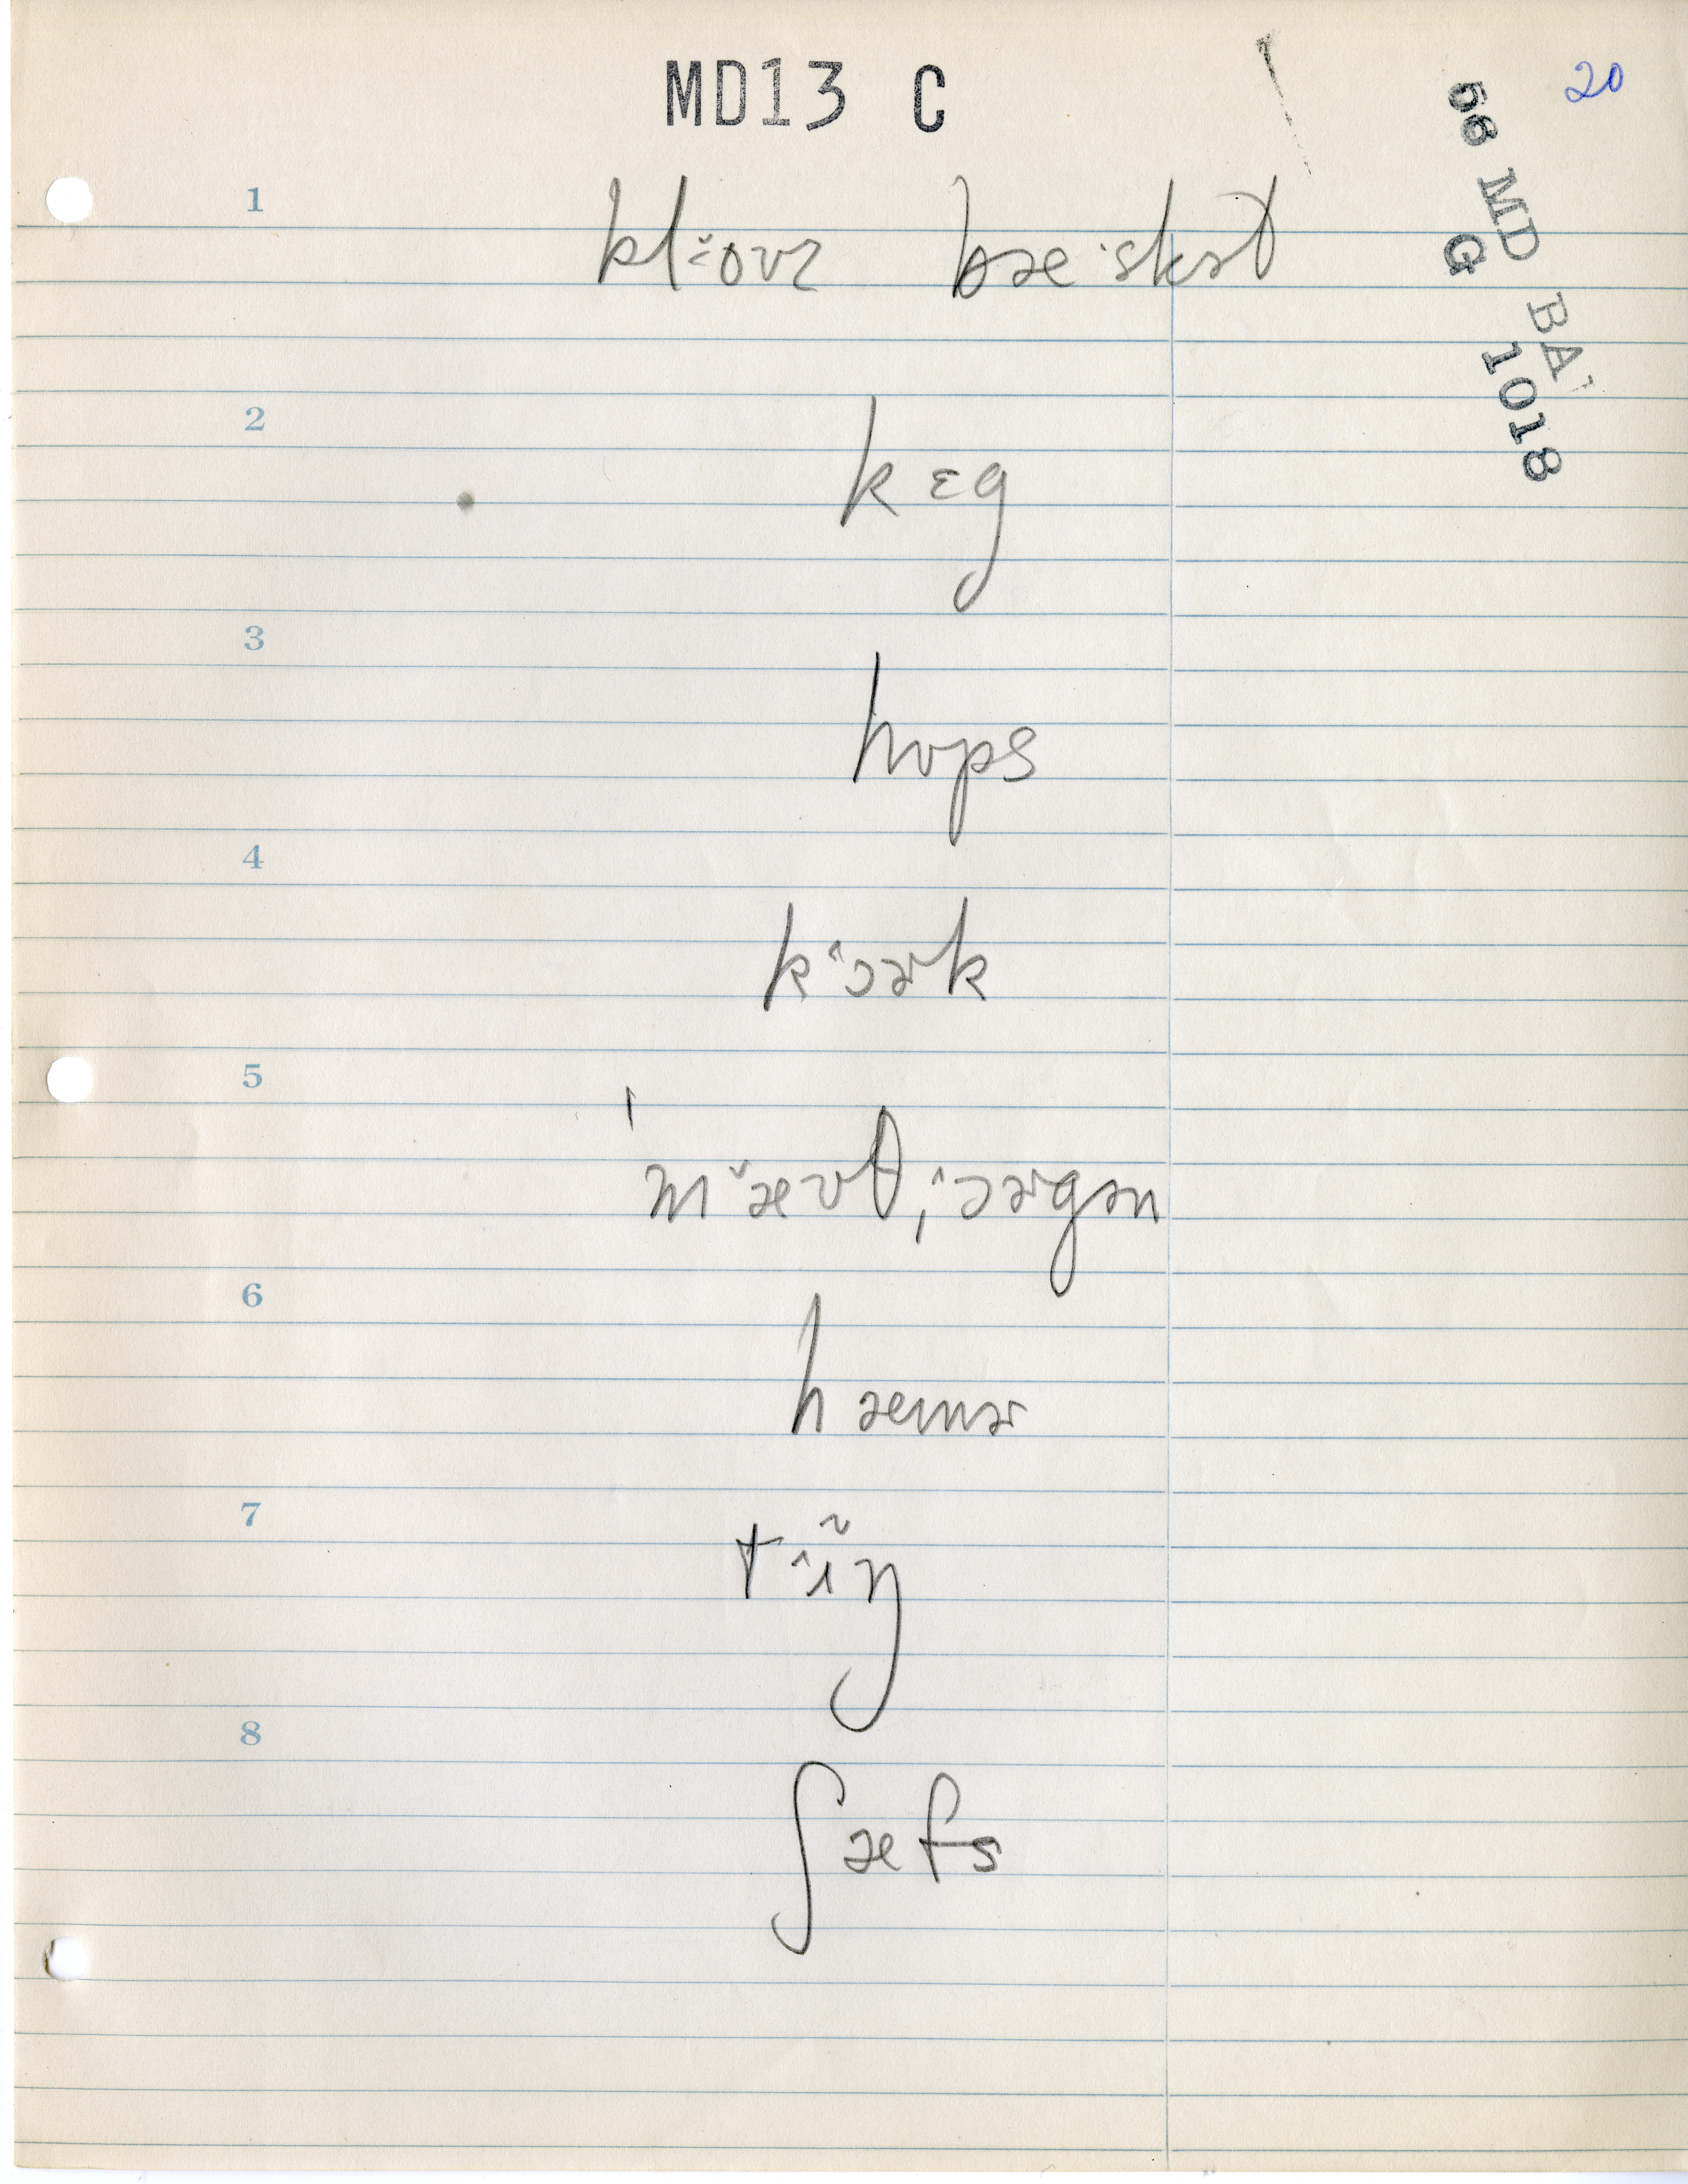 MD13 C
20
56 MD BA
G 1018
1
kl·ovz bæ·skət
2
kɛg
3
hɒps
4
kˆɔɚk
5
ˈmˇæʊθˌˆɔɚgən
6
hæmɚ
7
tˆɪ̃ŋ
8
ʃæfs